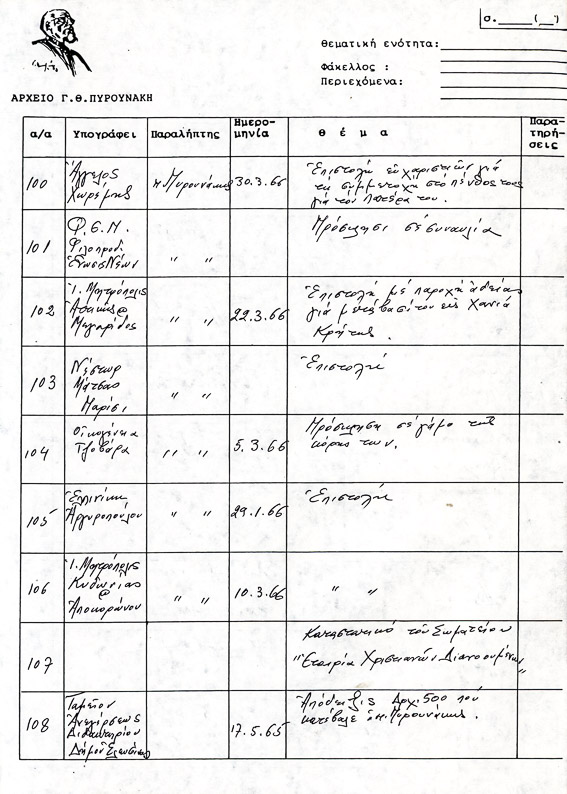 σ.____(__)
Θεματική ενότητα:
Φάκελλος :
Περιεχόμενα:
ΑΡΧΕΙΟ Γ.Θ.ΠΥΡΟΥΝΑΚΗ
α/α Υπογράφει Παραλήπτης Ημερομηνία Θ έ μ α Παρατηρήσεις
100 Ἄγγελος Χωρέμης π. Πυρουνάκης 30.3.66 Ἐπιστολή εὐχαριστιῶν γιά
τή συμμετοχή στό πένθος τους
γιά τόν Πατέρα του.
101 Φ.Ε.Ν.
Φιλοπροδ.
Ἕνωσις Νέων " " Πρόσκληση σέ συναυλία
102 Ἱ. Μητρόπολις
Ἀττικῆς &
Μεγαρίδος " " 22.3.66 Ἐπιστολή μέ παροχή ἀδείας
γιά μετάβασί του εἰς Χανιά
Κρήτης.
103 Νέστωρ
Μάτσας
Μαρίσι " " Ἐπιστολή
104 Οἰκογένεια
Τζοβάρα " " 5.3.66 Πρόσκληση σέ γάμο τῆς
κόρης των.
105 Ἑλπινίκη
Ἀργυροπούλου " " 29.1.66 Ἐπιστολή
106 Ἱ. Μητρόπολις
Κυδωνίας
&
Ἀποκορώνου " " 10.3.66 " "
107 Καταστατικό τοῦ Σωματείου
"Ἑταιρία Χριστιανῶν Διανοουμένων"
108 Ταμεῖον
Ἀνεγέρσεως
Διδακτηρίου
Δήμου Ἐλευσῖνος 17.5.65 Ἀπόδειξις Δρχ. 500 πού
κατέβαλε ὁ π. Πυρουνάκης.